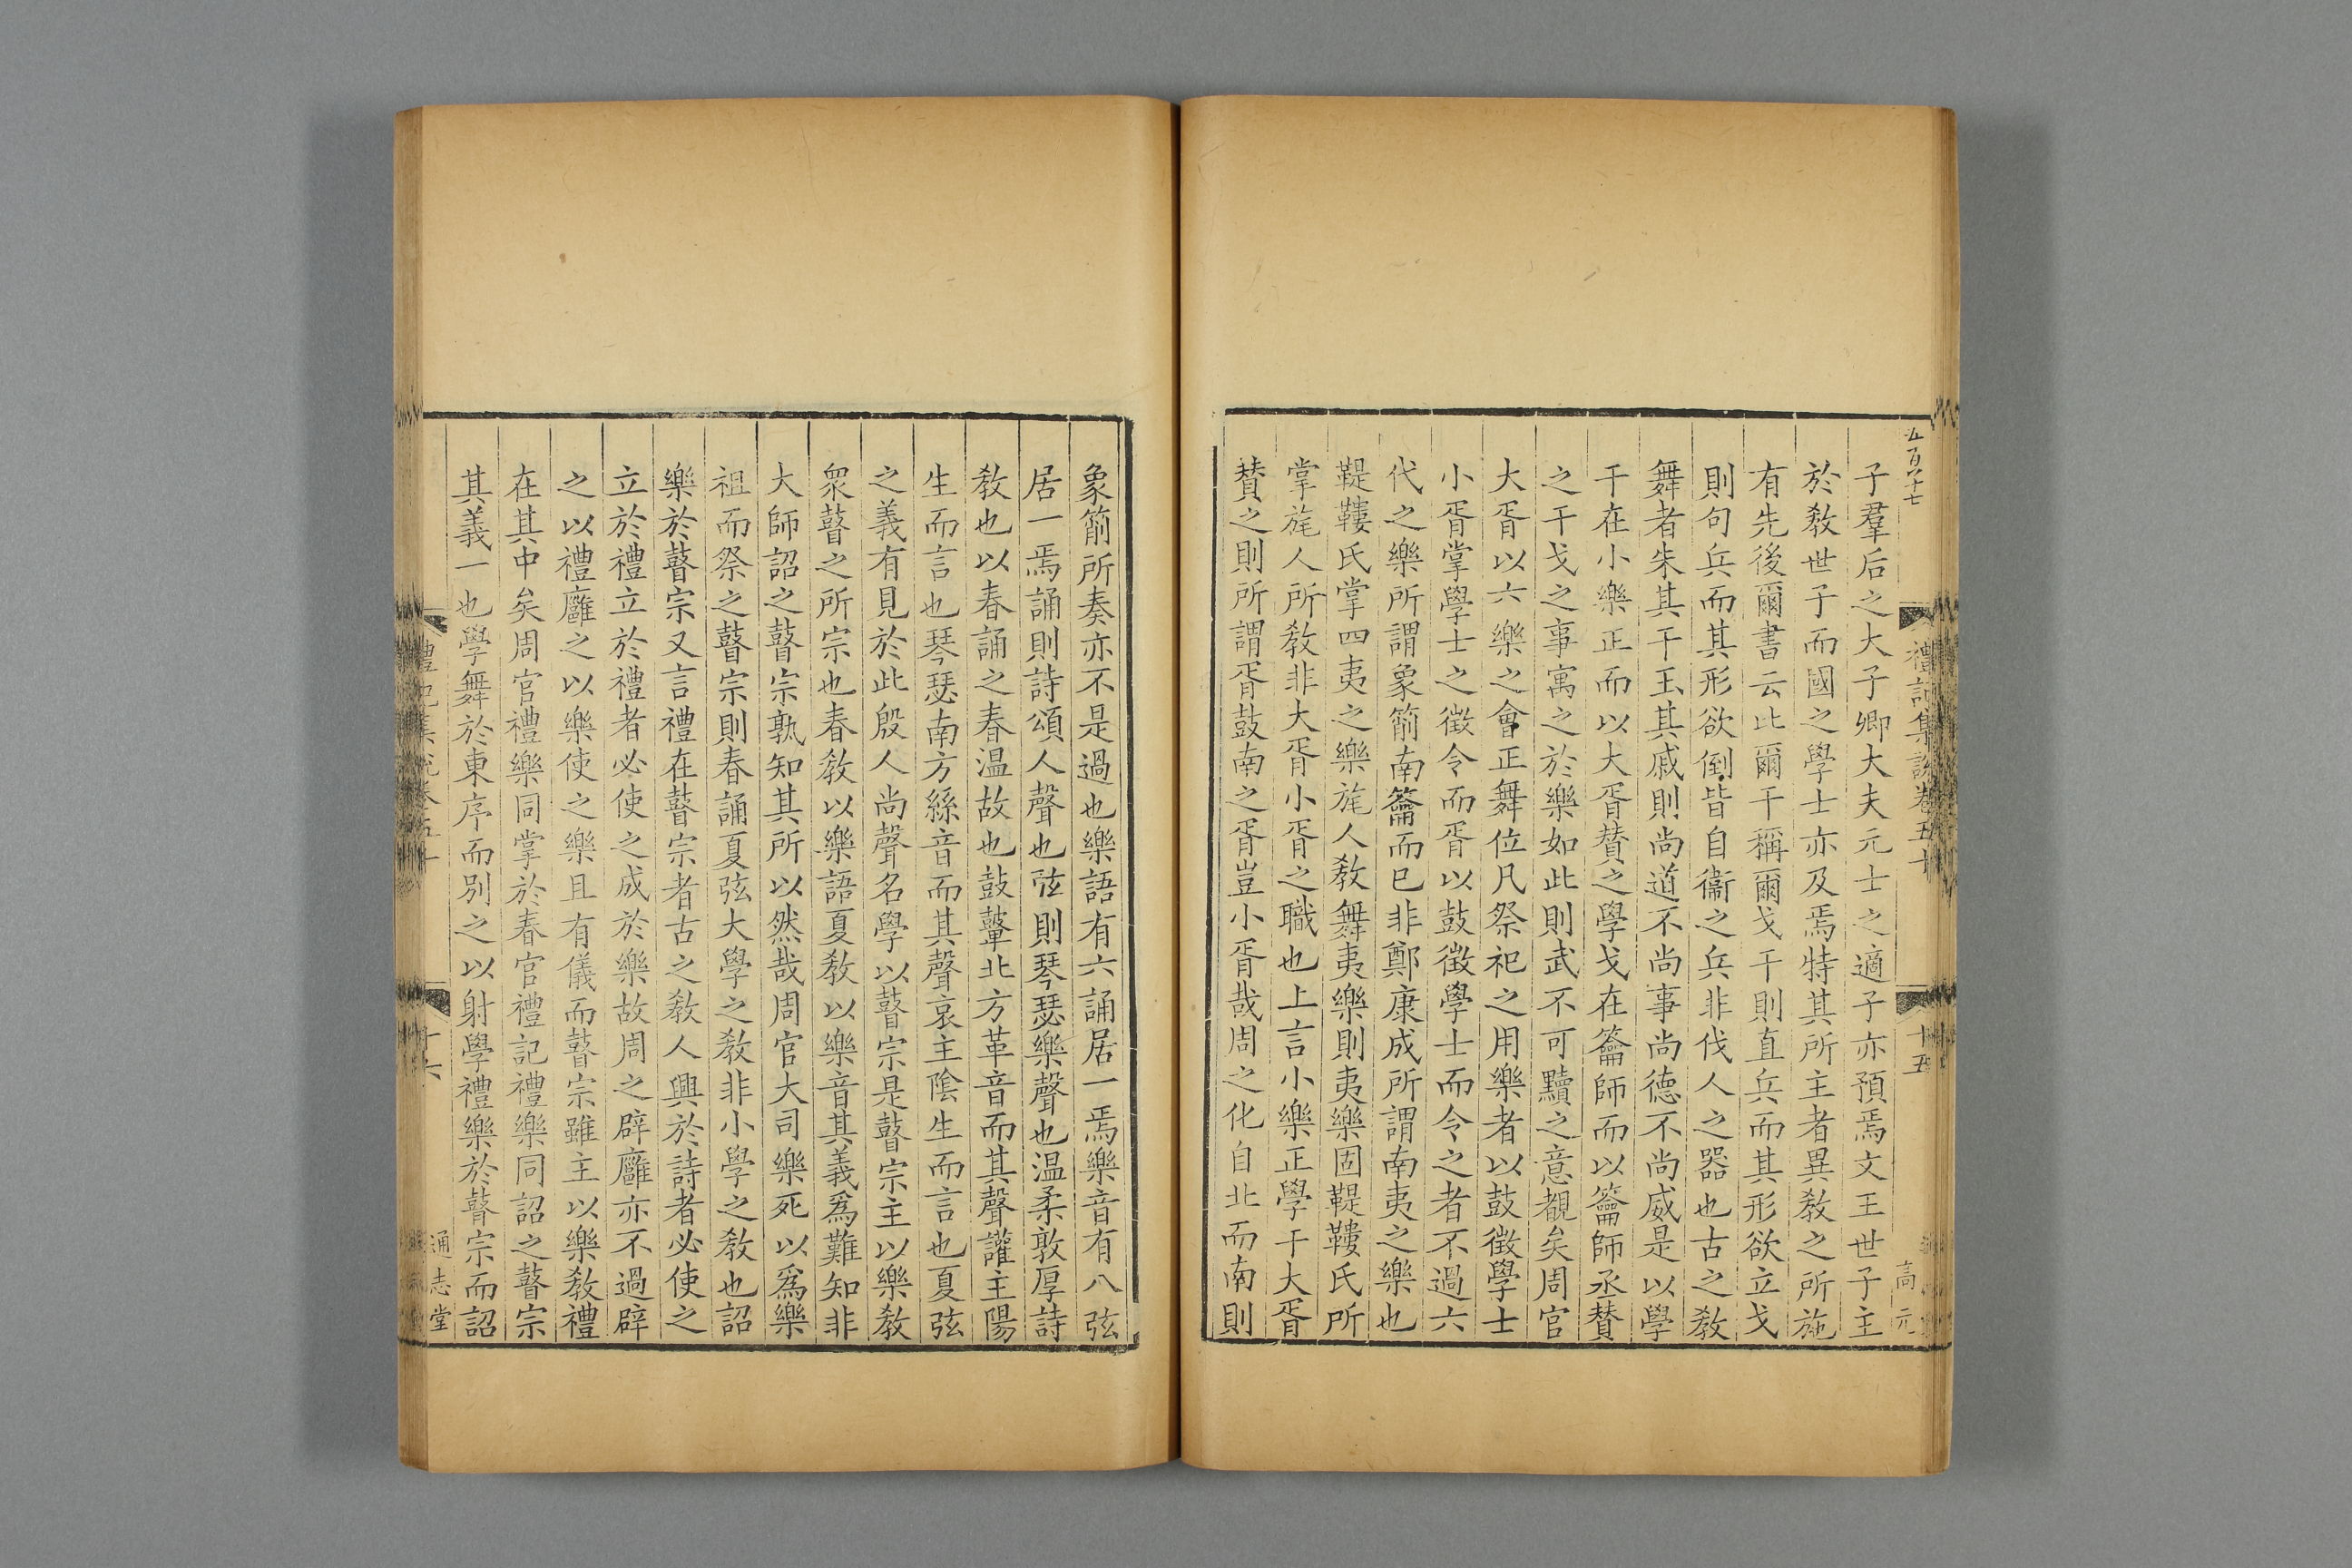 子羣后之大子卿大夫元士之適子亦預焉文王世子主
於敎世子而國之學士亦及焉特其所主者異敎之所施
有先後爾書云比爾干稱爾戈干則直兵而其形欲立戈
則句兵而其形欲倒皆自衞之兵非伐人之器也古之敎
舞者朱其干玉其戚則尚道不尚事尚德不尚威是以學
干在小樂正而以大胥贊之學戈在籥師而以籥師丞贊
之干戈之事寓之於樂如此則武不可黷之意覩矣周官
大胥以六樂之會正舞位凡祭祀之用樂者以鼓徵學士
小胥掌學士之徵令而胥以鼓徵學士而令之者不過六
代之樂所謂象箾南籥而已非鄭康成所謂南夷之樂也
鞮鞻氏掌四夷之樂旄人敎舞夷樂則夷樂固鞮鞻氏所
掌旄人所敎非大胥小胥之職也上言小樂正學干大胥
贊之則所謂胥鼓南之胥豈小胥哉周之化自北而南則
五百四十七
禮記集說卷五十
十五
高元
象箾所奏亦不是過也樂語有六誦居一焉樂音有八弦
居一焉誦則詩頌人聲也弦則琴瑟樂聲也温柔敦厚詩
敎也以春誦之春温故也鼓鼙北方革音而其聲讙主陽
生而言也琴瑟南方絲音而其聲哀主陰生而言也夏弦
之義有見於此殷人尚聲名學以瞽宗是瞽宗主以樂敎
衆瞽之所宗也春敎以樂語夏敎以樂音其義爲難知非
大師詔之瞽宗孰知其所以然哉周官大司樂死以爲樂
祖而祭之瞽宗則春誦夏弦大學之敎非小學之敎也詔
樂於瞽宗又言禮在瞽宗者古之敎人興於詩者必使之
立於禮立於禮者必使之成於樂故周之辟廱亦不過辟
之以禮廱之以樂使之樂且有儀而瞽宗雖主以樂敎禮
在其中矣周官禮樂同掌於春官禮記禮樂同詔之瞽宗
其義一也學舞於東序而別之以射學禮樂於瞽宗而詔
禮記集說卷五十
十六
通志堂